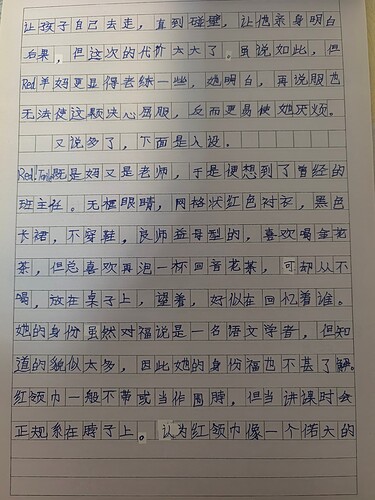 让孩子自己去走，直到碰壁，让他亲身明白
后果，但这次的代价太大了。虽说如此，但
Red羊妈更显得老练一些，她明白，再说服也
无法使这颗决心屈服，反而更易使她厌烦。
又说多了，下面是人设。
Red!妈既是妈又是老师，于是便想到了曾经的
班主任。无框眼睛，网格状红色衬衣，黑色
长裙，不穿鞋，良师益母型的，喜欢喝金花
茶，但总喜欢再泡一杯回音花茶，可却从不
喝，放在桌子上，望着，好似在回忆着谁。
她的身份虽然对福说是一名语文学者，但知
道的貌似太多，因此她的身份福也不甚了解。
红领巾一般不带或当作围脖，但当讲课时会
正规系在脖子上。认为红领巾像一个偌大的